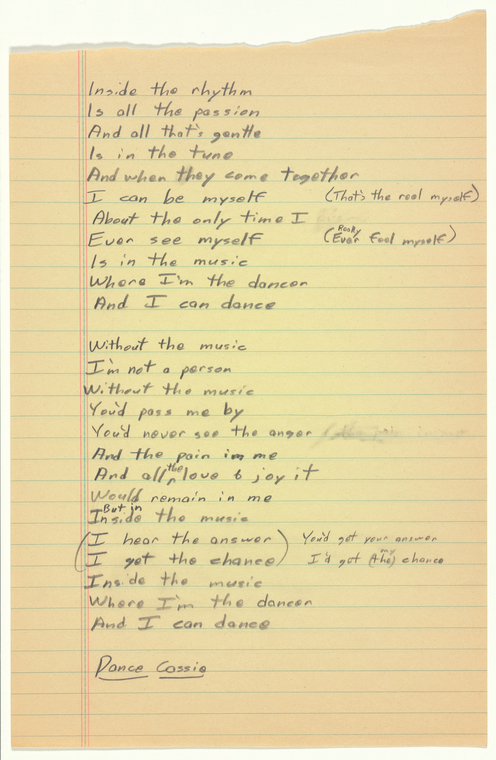 Inside the rhythm
Is all the passion
And all that's gentle
Is in the tune
And when they come together
I can be myself (That's the real myself)
About the only time I
Ever see myself (Ever Really feel myself)
Is in the music
Where I'm the dancer
And I can dance
Without the music
I'm not a person
Without the music
You'd pass me by
You'd never see the anger
And the pain in me
And all the love & joy it
Would remain in me
But in
Inside the music
(I hear the answer) You'd get your answer
(I get the chance) I'd get (the) my chance
Inside the music
Where I'm the dancer
And I can dance
Dance Cassie